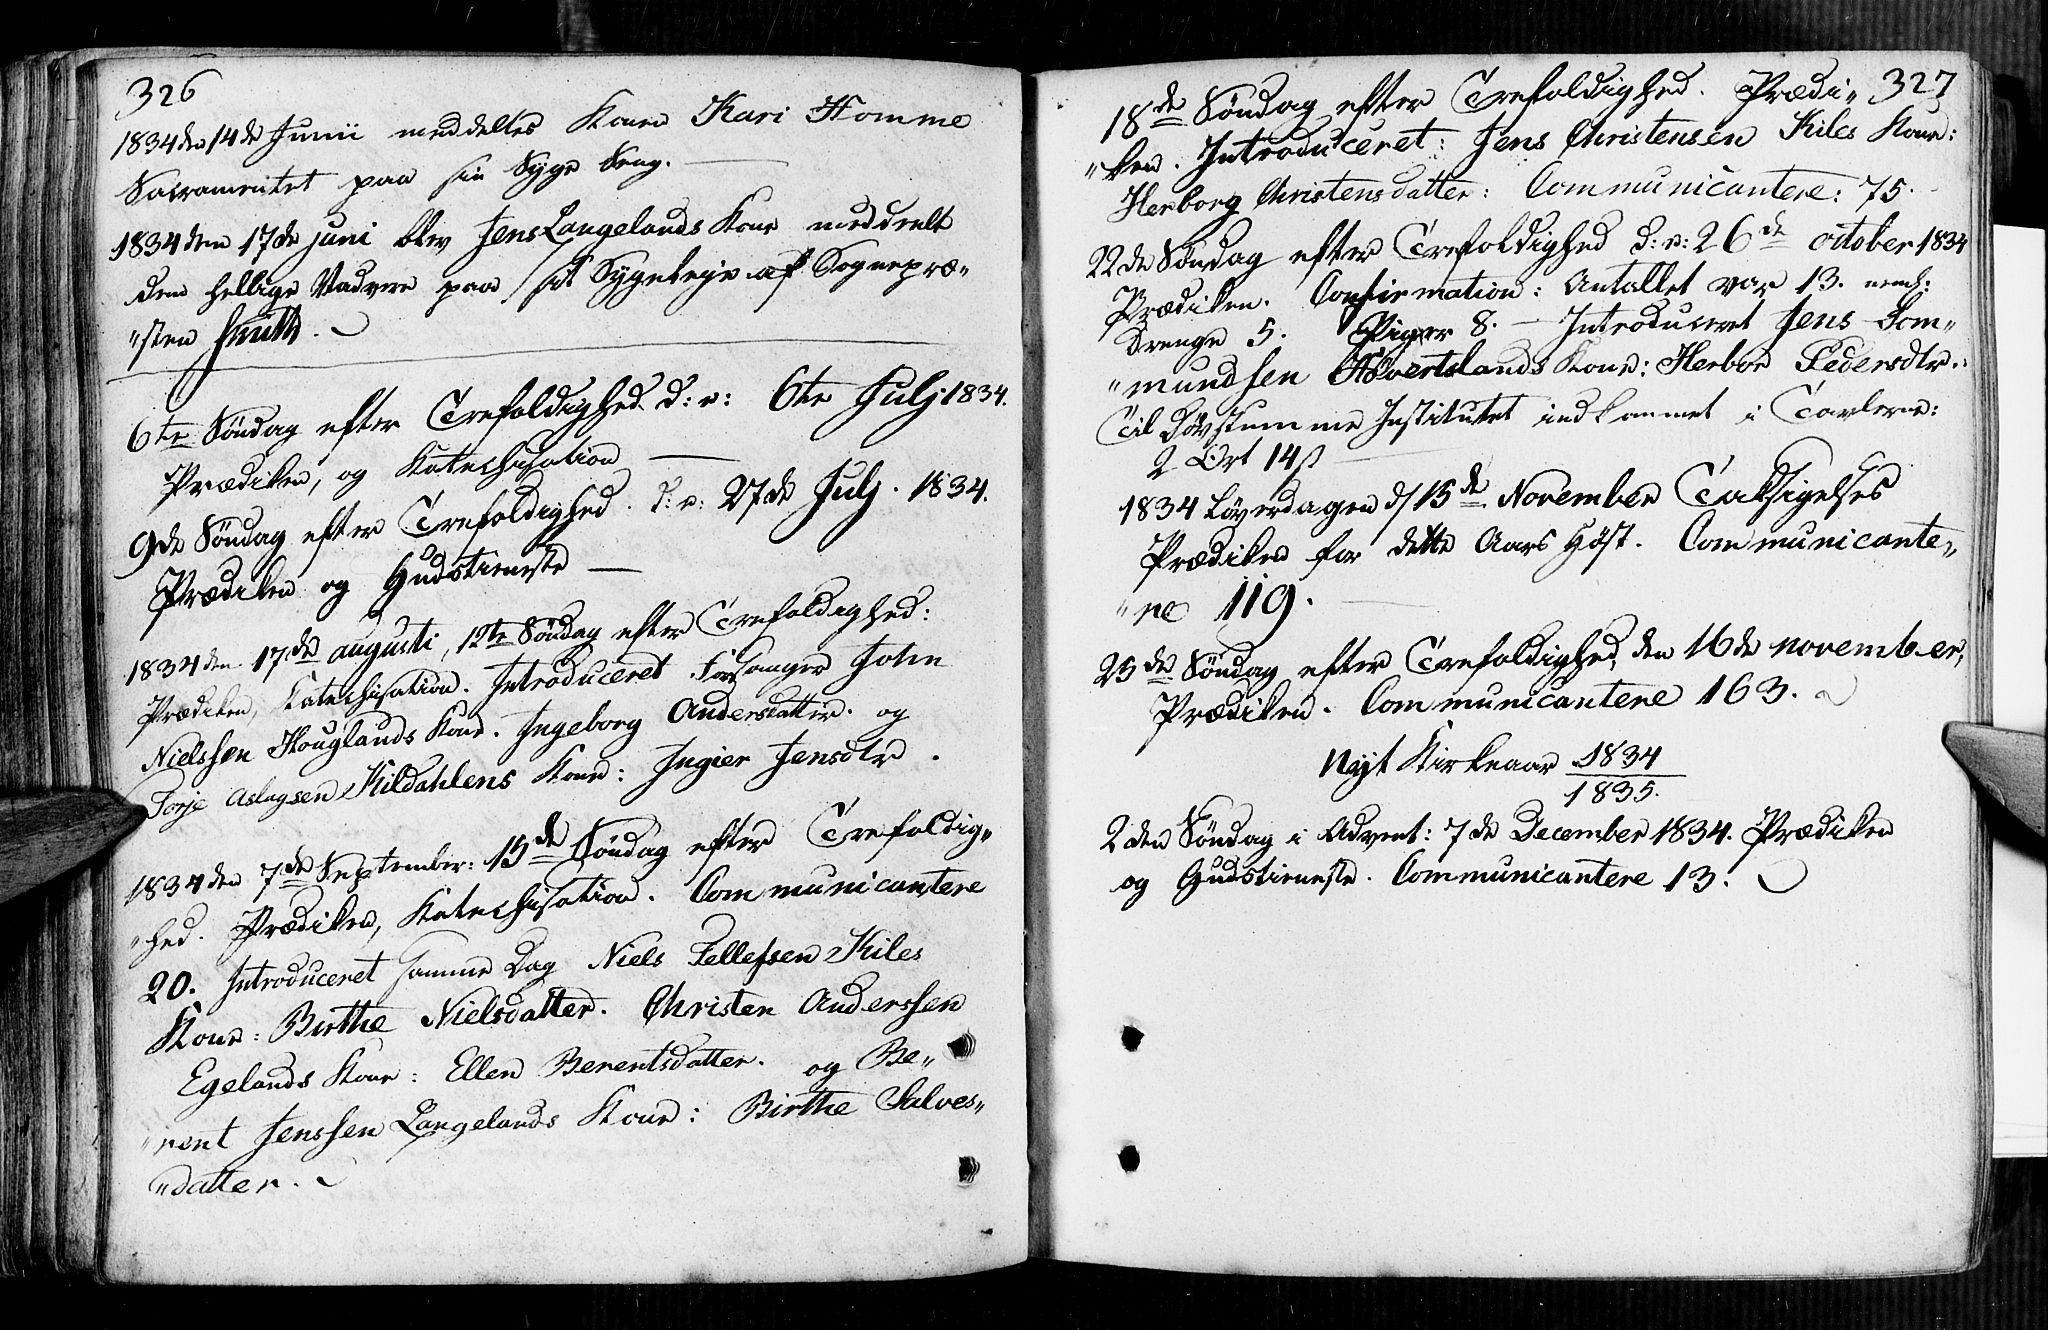 326
1834 den 14de Junii meddeltes Konen Kari Homme
Sacramentet paa sin Syge Seng.
1834 den 17de juni blev Jens Langelands Kone meddeelt
den hellige Nadvere paa sit Sygeleje af Sognepræ„
„sten Smith.
6te Söndag efter Trefoldighed. d: e: 6te Julj 1834.
Prædiken, og Katechisation
9de Söndag efter Trefoldighed. d: e: 27de Julj. 1834.
Prædiken og Gudstieneste
1834 den 17de augusti, 12te Söndag efter Trefoldighed:
Prædiken, Katechisation. Introduceret Forsanger John
Nielssen Houglands Kone. Ingeborg Andersdatter. og
Torje Aslagsen Kildahlens Kone: Ingier Jensdtr.
1834 den 7de September: 15de Söndag efter Trefoldig„
„hed. Prædiken, Katechisation. Communicantere
20. Introduceret samme Dag Niels Tellefsen Kiles
Kone: Birthe Nielsdatter. Christen Anderssen
Egelands Kone: Ellen Berentsdatter. og Be„
„rent Jenssen Langelands Kone: Birthe Salves„
„datter.
18de Söndag efter Trefoldighed. Prædi„ 327
„ken. Introduceret: Jens Christensen Kiles Kone:
Herborg Christensdatter: Communicantere: 75.
22de Söndag efter Trefoldighed d: e: 26de october 1834
Prædiken. Confirmation: Antallet var 13. neml:
Drenge 5. Piger 8. — Introduceret Jens Gom„
„mundsen Kone: Herbor Pedersdtr.
Til Døvstumme Institutet indkommet i Tavlerne:
2 Ort 14 ß
1834 Löverdagen d/15de November Taksigelses
Prædiken for dette Aars Høst. Communicante„
„re 119.
25de Söndag efter Trefoldighed, den 16de november,
Prædiken. Communicantere 163.
Nyt Kirkeaar 1834
1835.
2den Söndag i Advent: 7de December 1834. Prædiken
og Gudstieneste. Communicantere 13.